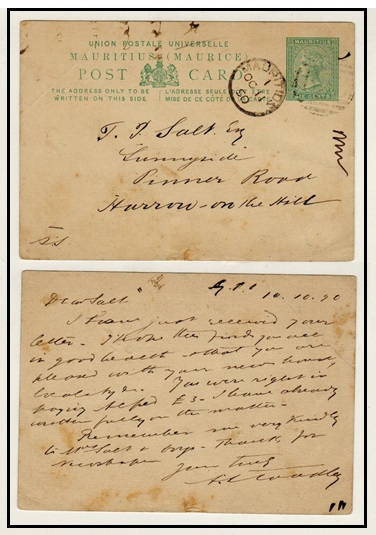 UNION POSTALE UNIVERSELLE
MAURITIUS (MAURICE)
POST CARD
THE ADDRESS ONLY TO BE WRITTEN ON THIS SIDE
L'ADRESSE SEULE
MISE DE CE CÔTÉ
MAURITIUS
MAURITIUS
OC
90
T. P. Salt. Esq
Sunnyside
Pinner Road
Harrow-on the Hill
Dear Salt
10.10.90
I have just received your
letter. I hope this finds you all
in good health & that you are
pleased with your new house,
locality &c. You were right in
paying Alfred £3. I have already
written fully on the matter.
Remember me very kindly
to Mrs Salt & boys. Thanks for
newspaper
Yours truly